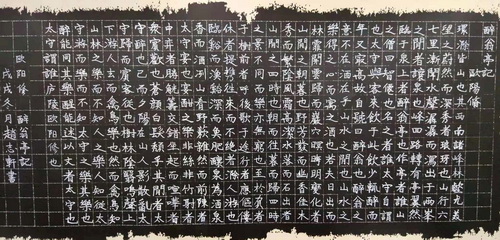 醉翁亭記
歐陽脩
環滁皆山也其西南諸峰林壑尤美
望之蔚然而深秀者琅琊也山行六
七里漸聞水聲潺潺而瀉出于兩峯
之間者釀泉也峰回路轉有亭翼然
臨于泉上者醉翁亭也作亭者誰山
之僧曰智僊也名之者誰太守自謂
也太守與客来飲于此飲少輒醉而
年又最高故自號曰醉翁也醉翁之
意不在酒在乎山水之間也山水之
樂得之心而寓之酒也若夫日出而
林霏開雲歸而巖穴暝晦明變化者
山間之朝暮也野芳發而幽香佳木
秀而繁陰風霜高潔水落而石出者
山間之四時也朝而往暮而歸四時
之景不同而樂亦無窮也至於負者
于樹前者呼後歌于途行者應傴僂
休者提攜往来而不絕者滁人游也
臨谿而漁谿深而魚肥釀泉為酒泉
香而酒洌山肴野蔌雜然而前陳者
太守宴也宴酣之樂非絲非竹射者
弈者勝觥籌交錯坐起而諠嘩者
眾賓歡也蒼顏白髮頹乎其間者太
守醉也已而夕陽在山人影散亂太
守歸而賓客從也樹林陰翳鳴聲上
下遊人去而禽鳥樂也然而禽鳥知
山林之樂而不知人之樂人知從太
守遊而樂而不知太守之樂其樂也
醉能同其樂醒能述以文者太守也
太守謂誰廬陵歐陽修也
歐陽脩 醉翁亭記
戊戌冬月趙志軒書